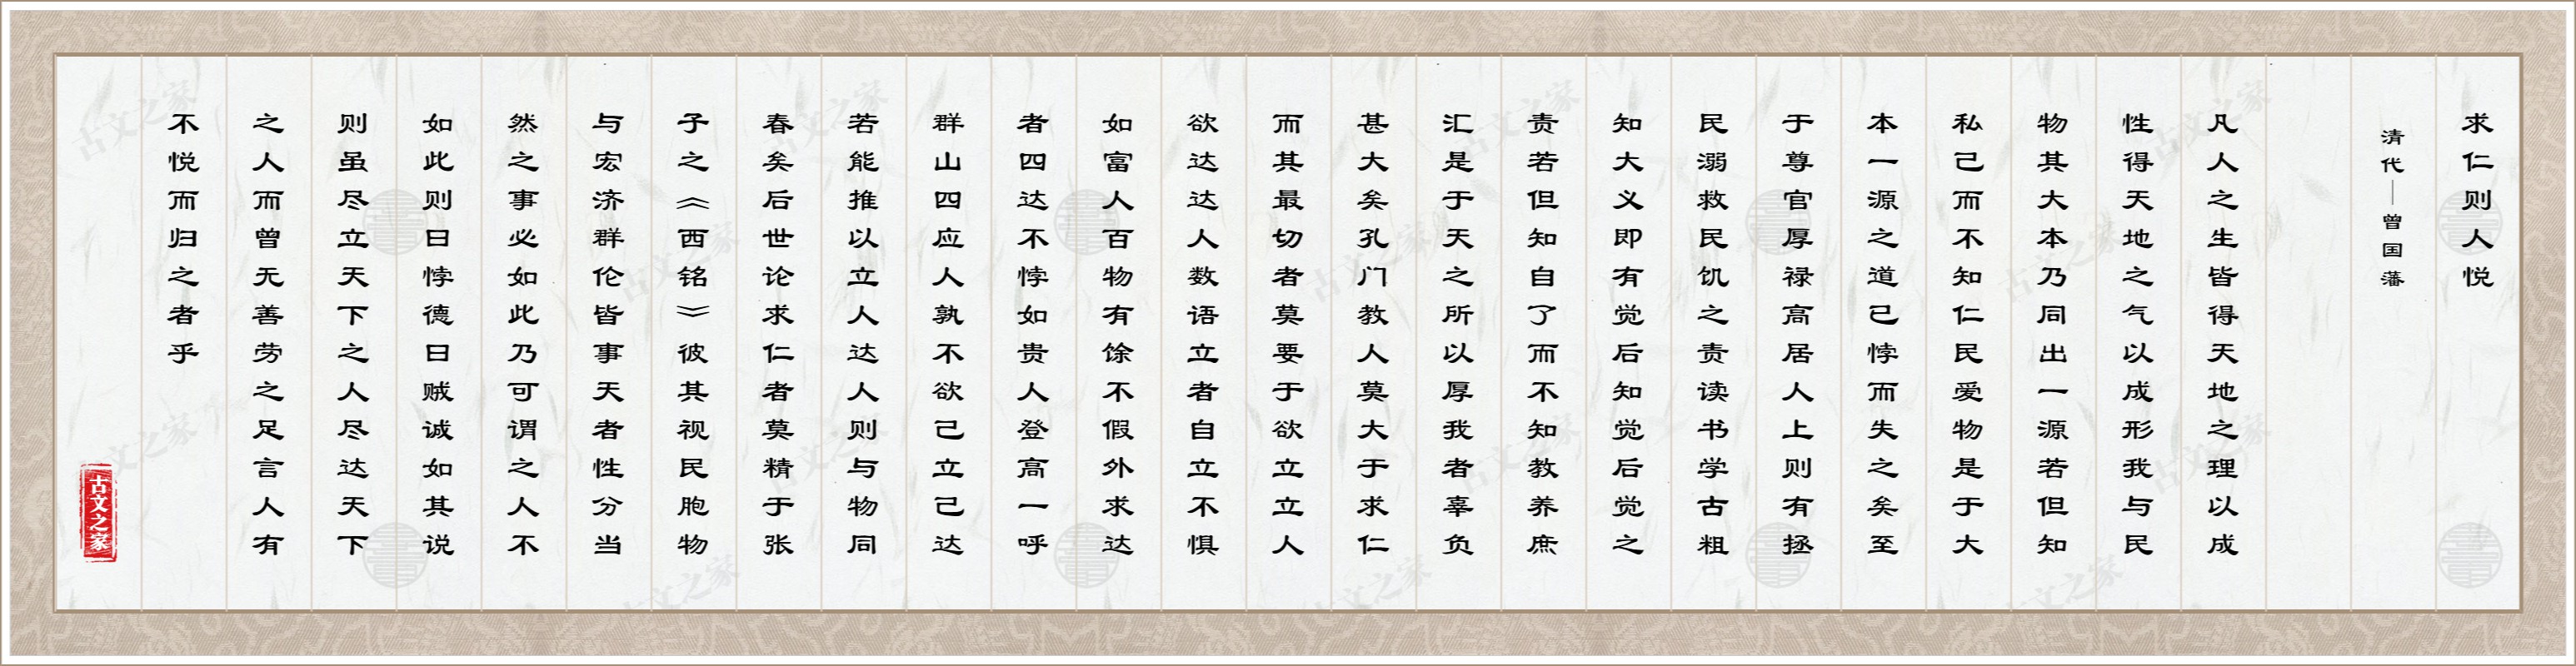 求仁则人悦
清代—曾国藩
凡人之生皆得天地之理以成
性得天地之气以成形我与民
物其大本乃同出一源若但知
私己而不知仁民爱物是于大
本一源之道已悖而失之矣至
于尊官厚禄高居人上则有拯
民溺救民饥之责读书学古粗
知大义即有觉后知觉后觉之
责若但知自了而不知教养庶
汇是于天之所以厚我者辜负
甚大矣孔门教人莫大于求仁
而其最切者莫要于欲立立人
欲达达人数语立者自立不惧
如富人百物有馀不假外求达
者四达不悖如贵人登高一呼
群山四应人孰不欲己立己达
若能推以立人达人则与物同
春矣后世论求仁者莫精于张
子之《西铭》彼其视民胞物
与宏济群伦皆事天者性分当
然之事必如此乃可谓之人不
如此则曰悖德曰贼诚如其说
则虽尽立天下之人尽达天下
之人而曾无善劳之足言人有
不悦而归之者乎
古文之家